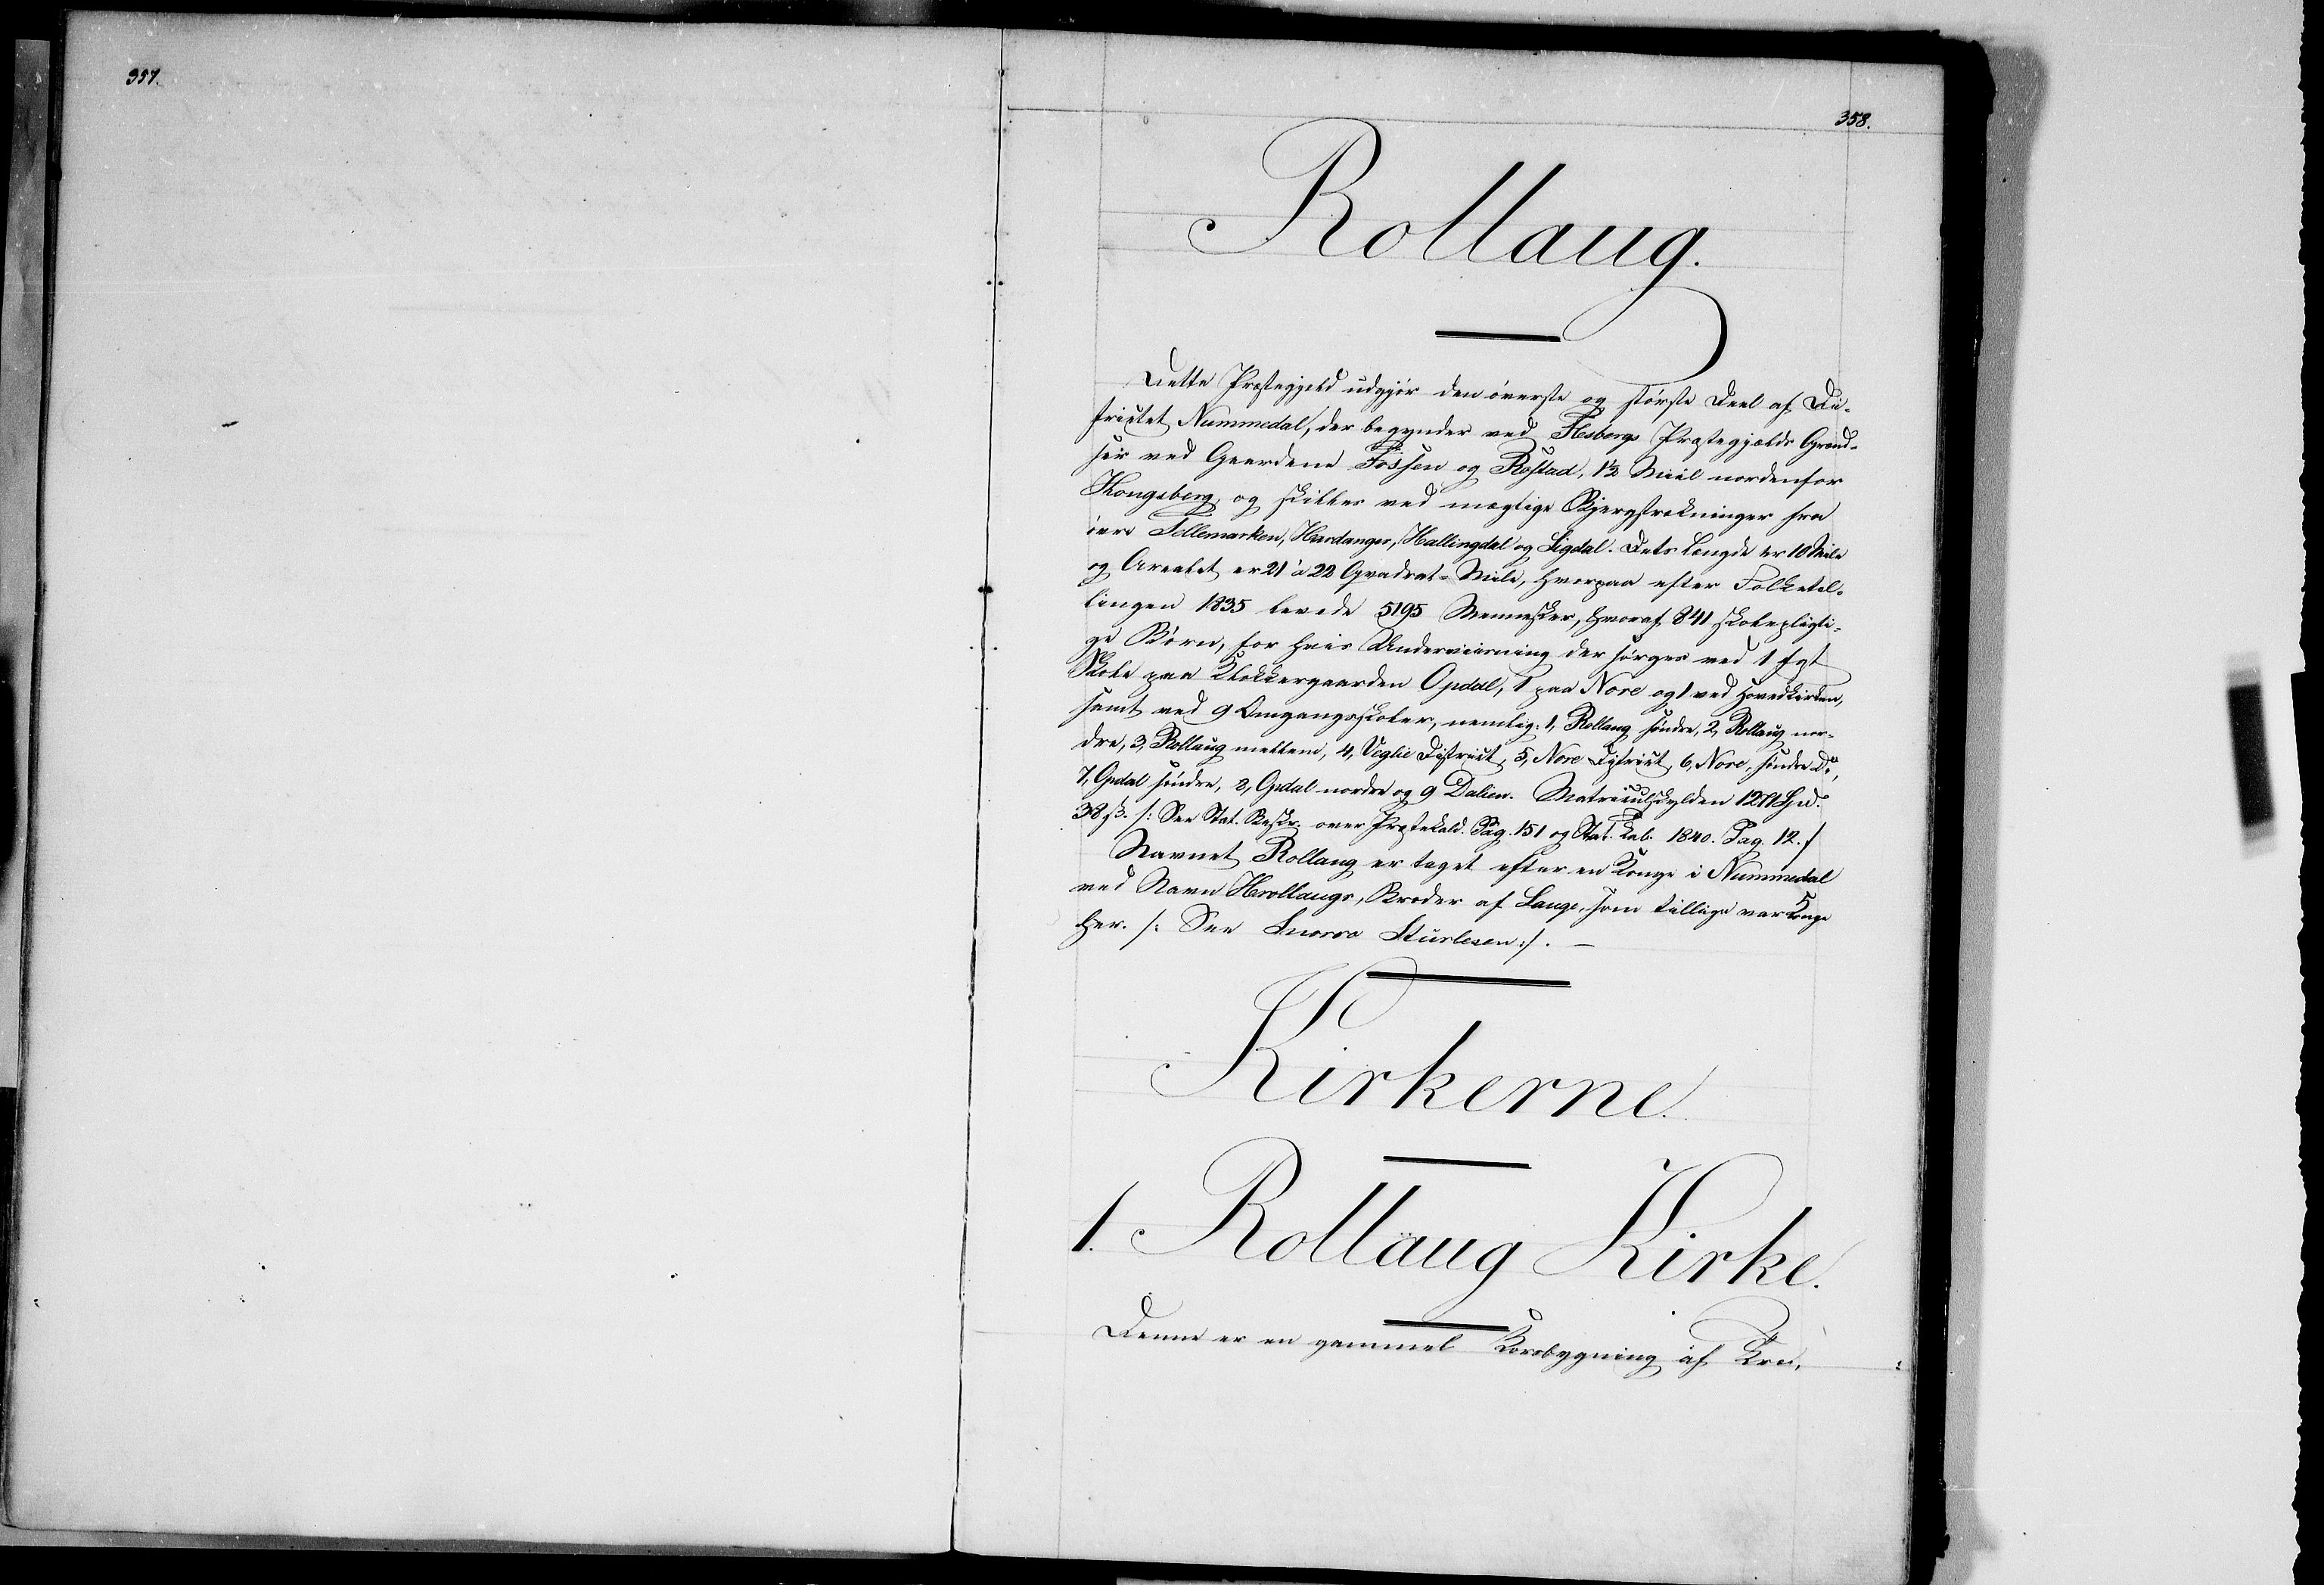 357.
358.
Rollaug.
Dette Præstegjeld udgjør den øverste og største Deel af Di-
strictet Nummedal, der begynder ved Flesbergs Præstegjælds Grænd-
ser ved Gaardene Fossen og Rostad, 1½ Miil nordenfor
Kongsberg, og skilles ved mægtige Bjergstrækninger fra
øvre Tellemarken, Hardanger, Hallingdal og Sigdal. Dets Længde er 10 Mile
og Arealet er 21 à 22 Qvadrat-Mile, hvorpaa efter Folketæl-
lingen 1835 levede 5195 Mennesker, hvoraf 841 skolepligti-
ge Børn, for hvis Underviisning der sørges ved 1 fast
Skole paa Klokkergaarden Opdal, 1 paa Nore og 1 ved Hovedkirken,
samt ved 9 Omgangsskoler, nemlig: 1, Rollaug søndre, 2, Rollaug nor-
dre, 3, Rollaug mellem, 4, Veglie District, 5, Nore District, 6, Nore, søndre Do,
7, Opdal søndre, 8, Opdal nordre og 9 Dalien. Matriculskylden 1271 Hud.
38 ß. /: See Stat. Beskr. over Præstekald. Pag. 151 og Stat. Tab. 1840. Pag. 12. /
Navnet Rollaug er taget efter en Konge i Nummedal
ved Navn Hrollaugr, Broder af Lauge, som tillige var Konge
her. /: See Snorro Sturlesen :/. —
Kirkerne.
1. Rollaug Kirke.
Denne er en gammel Korsbygning af Træ,